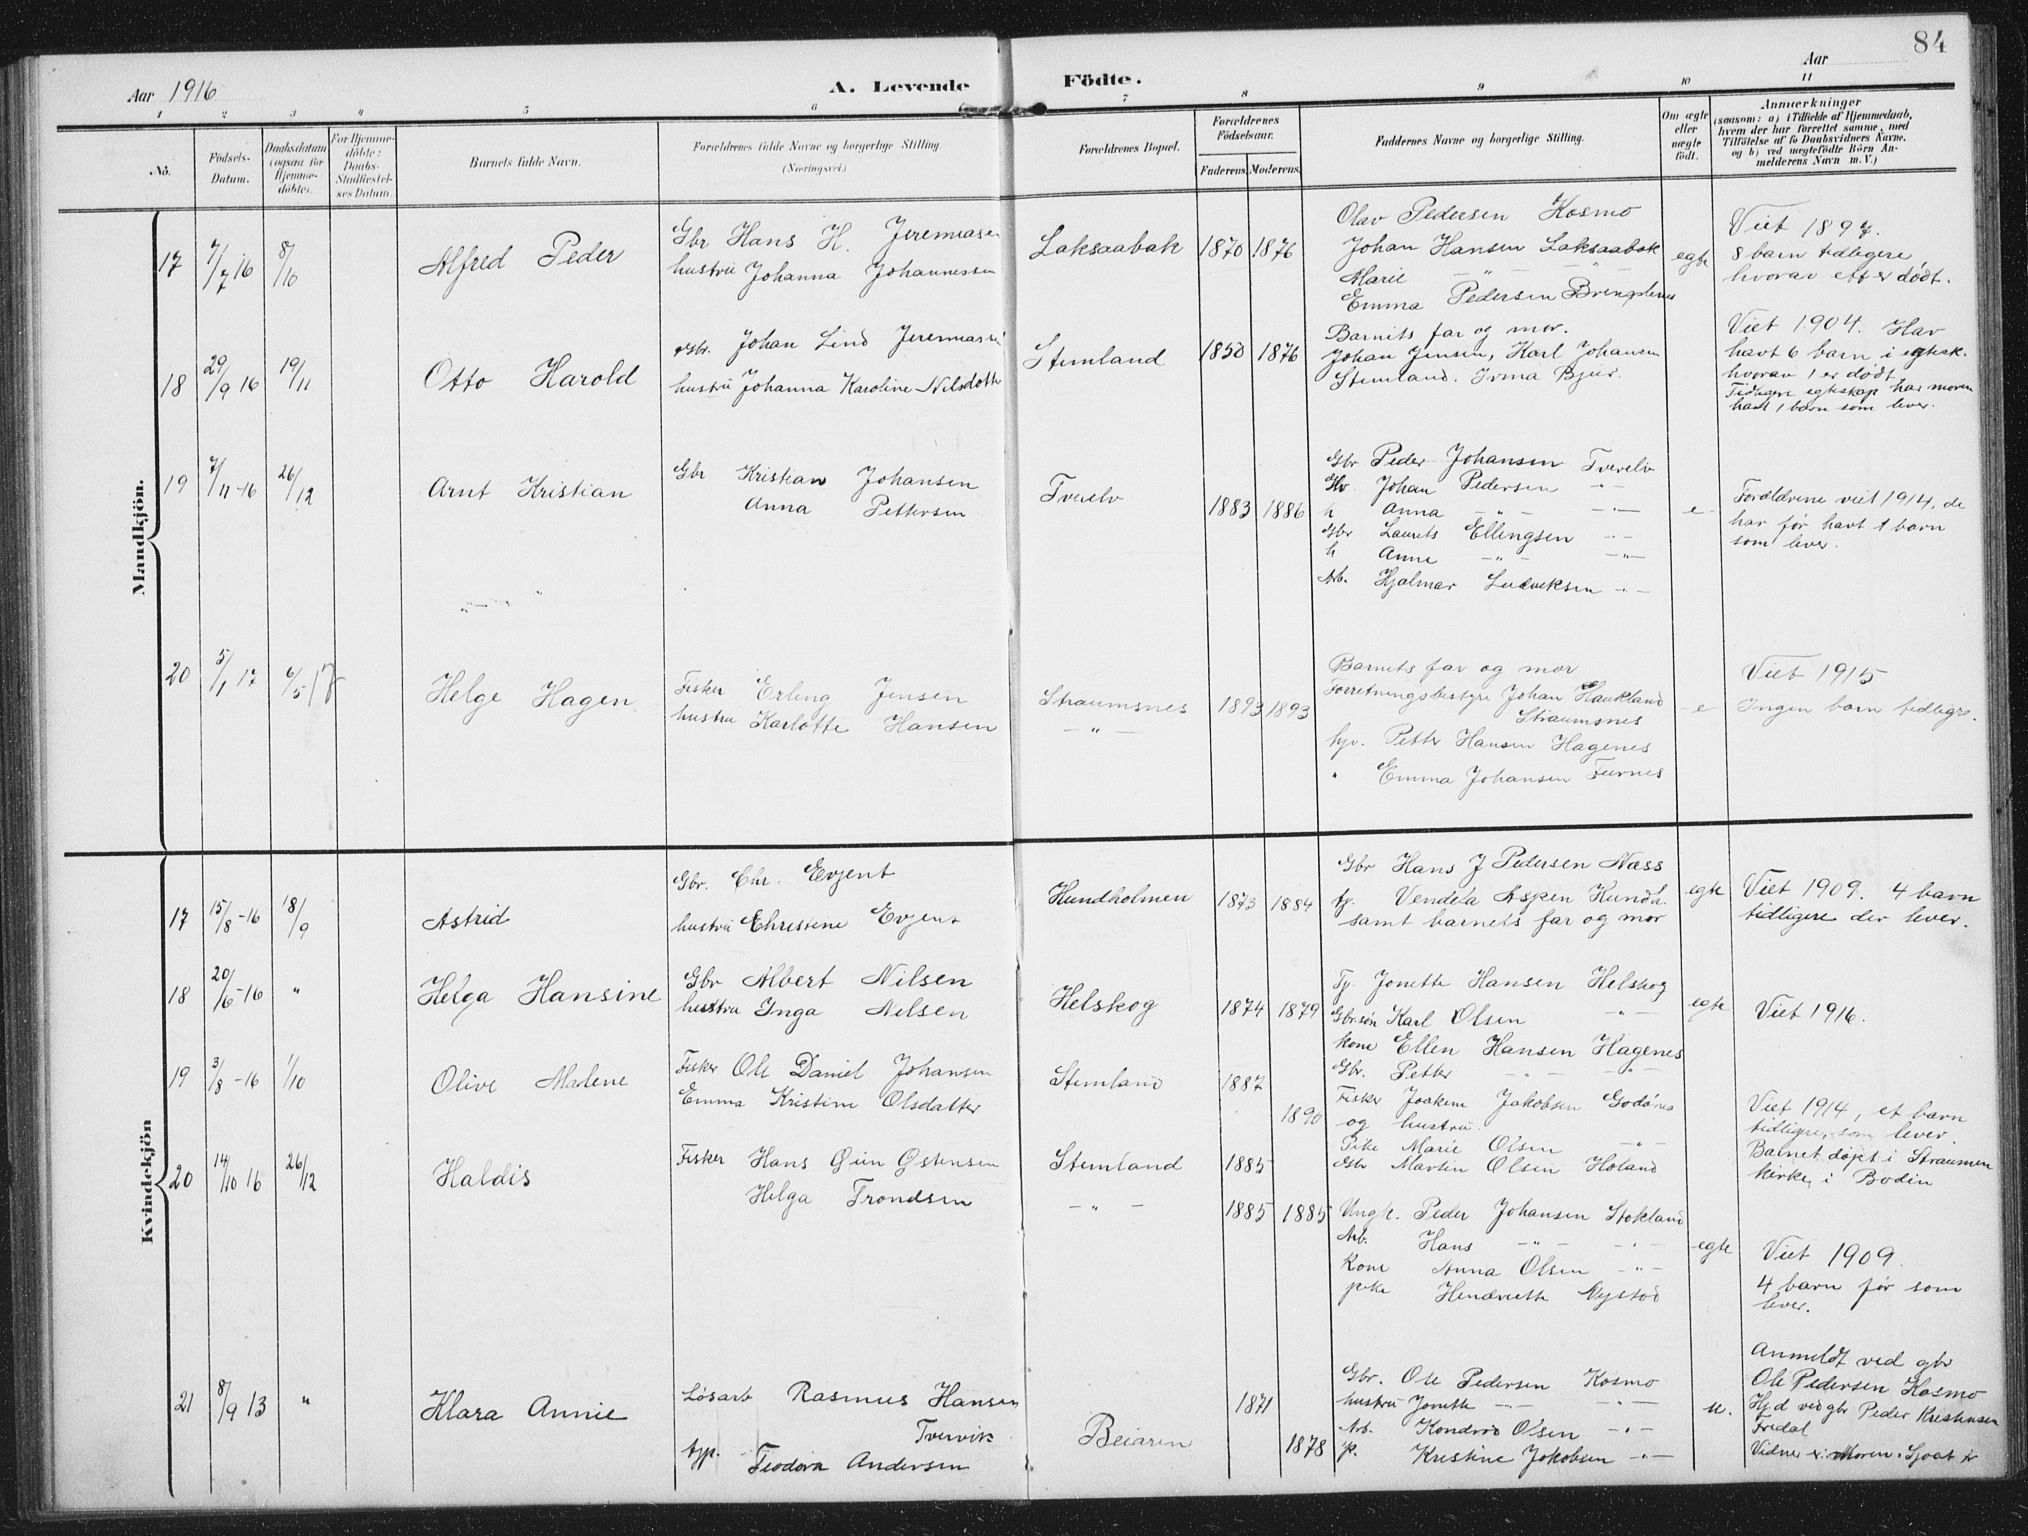 84
Aar 1916
A. Levende Födte.
Aar
1 2 3 4 5 6 7 8 9 10 11
No.
Födsels-Datum.
Daabsdatum (ogsaa for Hjemme-döbte).
For Hjemme-döbte: Daabs-Stadfæstelses Datum.
Barnets fulde Navn.
Forældrenes fulde Navne og borgerlige Stilling. (Næringsvei.)
Forældrenes Bopæl.
Forældrenes Födselsaar.
Faderens. Moderens.
Faddernes Navne og borgerlige Stilling.
Om ægte eller uægte födt.
Anmærkninger
(saasom: a) i Tilfælde af Hjemmedaab, hvem der har forrettet samme, med Tilföielse af to Daabsvidners Navne. og b) ved uægtefödte Börn Anmelderens Navn m. V.)
Mandkjön.
17 7/7 16 8/10
Alfred Peder
Gbr Hans H. Jeremiasen
hustru Johanna Johannessen
Laksaabak 1870 1876
Olav Pedersen Kosmo
Johan Hansen Laksaabak
Marie - " - -
Emma Pedersen Bringslenes
egte
Viet 1897.
8 barn tidligere
hvorav ett er dødt.
18 29/9 16 19/11
Otto Harold
Gbr. Johan Lind Jeremiassen
hustru Johanna Karoline Nilsdotter
Stemland 1850 1876
Barnets far og mor.
Johan Jensen, Karl Johansen
Stemland. Irma Bjur.
Viet 1904. Har
havt 6 barn i egtesk.
hvorav 1 er dødt.
Tidligere egteskap har moren
havt 1 barn som lever.
19 7/11-16 26/12
Arnt Kristian
Gbr Kristian Johansen
Anna Pettersen
Tverelv 1883 1886
Gbr Peder Johansen Tverelv
Gbr. Johan Pedersen - " -
h Anna - " - - " -
Gbr Laurits Ellingsen - " -
h Anne - " - - " -
Arb. Hjalmar Ludviksen - " -
e
Forældrene viet 1914, de
har før havt 1 barn
som lever.
20 5/1 17 6/5 17
Helge Hagen
Fisker Erling Jensen
hustru Karlotte Hansen
Straumsnes 1893 1893
- " -
Barnets far og mor
Forretningsbestyre Johan Haukland
Straumsnes
hjv. Petter Hansen Hagenes
" Emma Johansen Furnes
e
Viet 1915
Ingen barn tidligre.
Kvindekjön
17 15/8-16 18/9
Astrid
Gbr. Chr. Evjent
hustru Christine Evjent
Hundholmen 1873 1884
Gbr Hans J Pedersen Næss
tj. Vendela Aspen Hundh.
samt barnets far og mor
egte
Viet 1909. 4 barn
tidligere der lever.
18 20/6-16 "
Helga Hansine
Gbr Albert Nilsen
hustru Inga Nilsen
Helskog 1874 1879
Tj. Jonette Hansen Helskog
Gbrsøn Karl Olsen - " -
kone Ellen Hansen Hagenes
Gbr. Petter - " - - " -
egte
Viet 1916.
19 3/8-16 1/10
Olive Malene
Fisker Ole Daniel Johansen
Emma Kristine Olsdatter
Stemland 1887
1890
Fisker Joakim Jakobsen Godønes
og hustru.
Pike Marie Olsen - " -
Gbr Martin Olsen Høland
Viet 1914, et barn
tidligre, som lever.
Barnet døpt i Straumen
kirke i Bodin
20 14/10 16 26/12
Haldis
Fisker Hans Østensen
Helga Trondsen
Stemland 1885
- " - 1885 1885
Ungk. Peder Johansen Stokland
Arb. Hans - " - - " -
Kone Anna Olsen - " -
pike Hendriette Nystod
egte
Viet 1909.
4 barn før som
lever.
21 8/9 13 "
Klara Annie
Løsarb Rasmus Hansen
Tvervik
typ. Teodora Andersen
Beiaren 1871
1878
Gbr. Ole Pedersen Kosmo
hustru Jonette - " - - " -
Arb. Kondrad Olsen - " -
p. Kristine Jakobsen - " -
u.
Anmeldt ved gbr
Ole Pedersen Kosmo
Hj.d ved gbr Peder Kristensen
Fredal
Vidner er: Moren